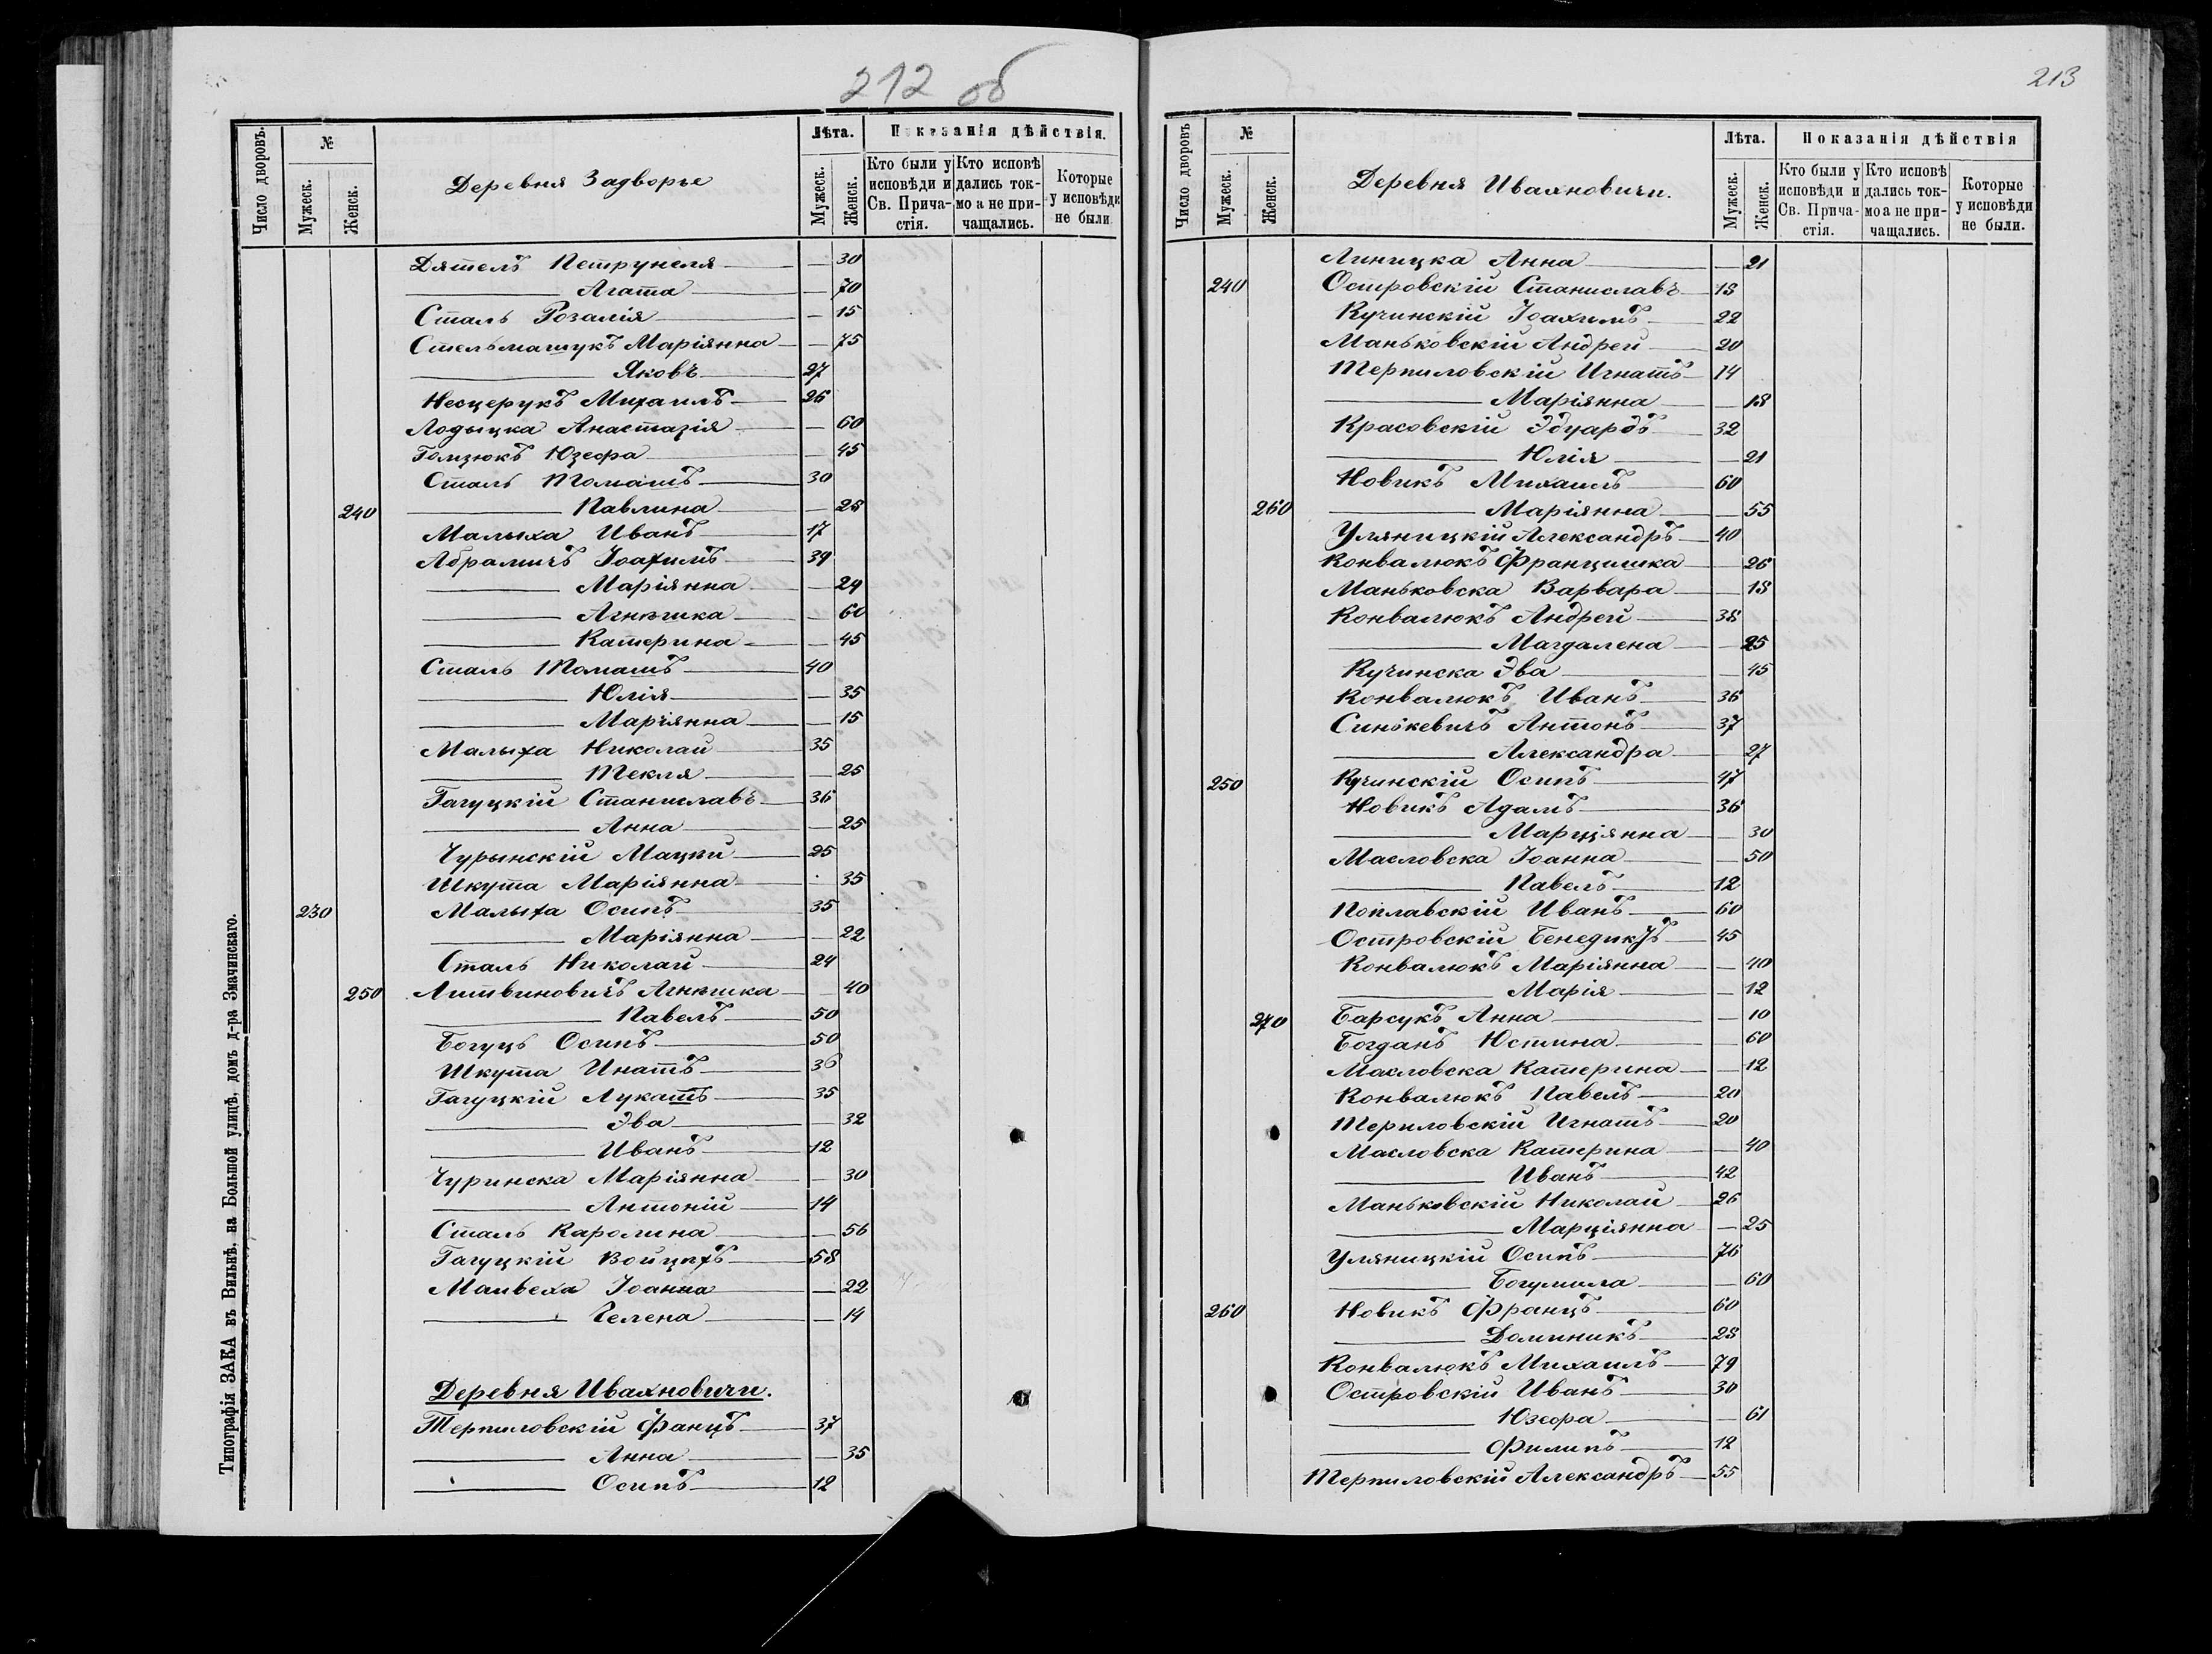 212 об
Число дворовъ.
№
Мужеск.
Женск.
Деревня Задворье
Лѣта.
Мужеск.
Женск.
Показанія дѣйствія.
Кто были у исповѣди и Св. Прича-стія.
Кто исповѣ дались ток-мо а не при-чащались.
Которые у исповѣди не были
Дятелъ Петрунеля — 30
Агата — 70
Сталь Розалія — 15
Стельмашукъ Маріянна — 75
Яковъ 27
Несцерукъ Михаилъ 26
Лодыцка Анастазія — 60
Гомзюкъ Юзефа — 45
Сталь Томашъ 30
240 Павлина — 28
Малыха Иванъ 17
Абрамичъ Іоахимъ 39
Маріянна — 24
Агнѣшка — 60
Катерина — 45
Сталь Томашъ 40
Юлія — 35
Маріянна — 15
Малыха Николай 35
Текля — 25
Гагуцкій Станиславъ 36
Анна — 25
Чурынскій Мацѣй 25
Шкута Маріянна 35
230 Малыха Осипъ 35
Маріянна — 22
Сталь Николай 24
250 Литвиновичъ Агнѣшка — 40
Павелъ 50
Богуцъ Осипъ 50
Шкута Инатъ 36
Гагуцкій Лукашъ 35
Эва — 32
Иванъ 12
Чуринска Маріянна — 30
Антоній 14
Сталь Каролина — 56
Гагуцкій Войцѣхъ 58
Маивеха Іоанна — 22
Гелена — 14
Деревня Ивахновичи.
Терпиловскій Фанцъ 37
Анна — 35
Осипъ 12
Типографія ЗАКА въ Вильнѣ, на Большой улицѣ, домъ д-ра Змачинскаго.
213
Число дворовъ
№
Мужеск.
Женск.
Деревня Ивахновичи.
Лѣта.
Мужеск.
Женск.
Показанія дѣйствія
Кто были у исповѣди и Св. Прича-стія.
Кто исповѣ дались ток-мо а не при-чащались.
Которые у исповѣди не были.
Линицка Анна — 21
240 Островскій Станиславъ 18
Кучинскій Іоахимъ 22
Маньковскій Андрей 20
Терпиловскій Игнатъ 14
Маріянна — 18
Красовскій Эдуардъ 32
Юлія — 21
Новикъ Михаилъ 60
260 Маріянна — 55
Уляницкій Александръ 40
Конвалюкъ Францишка — 26
Маньковска Варвара — 18
Конвалюкъ Андрей 38
Магдалена — 25
Кучинска Эва — 45
Конвалюкъ Иванъ 36
Синькевичъ Антонъ 37
Александра — 27
250 Кучинскій Осипъ 47
Новикъ Адамъ 36
Марціянна — 30
Масловска Іоанна — 50
Павелъ 12
Поплавскій Иванъ 60
Островскій Бенедиктъ 45
Конвалюкъ Маріянна — 40
Марія — 12
270 Барсукъ Анна — 10
Богданъ Юстина — 60
Масловска Катерина — 12
Конвалюкъ Павелъ 20
Териловскій Игнатъ 20
Масловска Катерина — 40
Иванъ 42
Маньковскій Николай 26
Марціянна — 25
Уляницкій Осипъ 76
Богумила — 60
260 Новикъ Францъ 60
Доминикъ 28
Конвалюкъ Михаилъ 79
Островскій Иванъ 30
Юзефа — 61
Филипъ 12
Терпиловскій Александръ 55